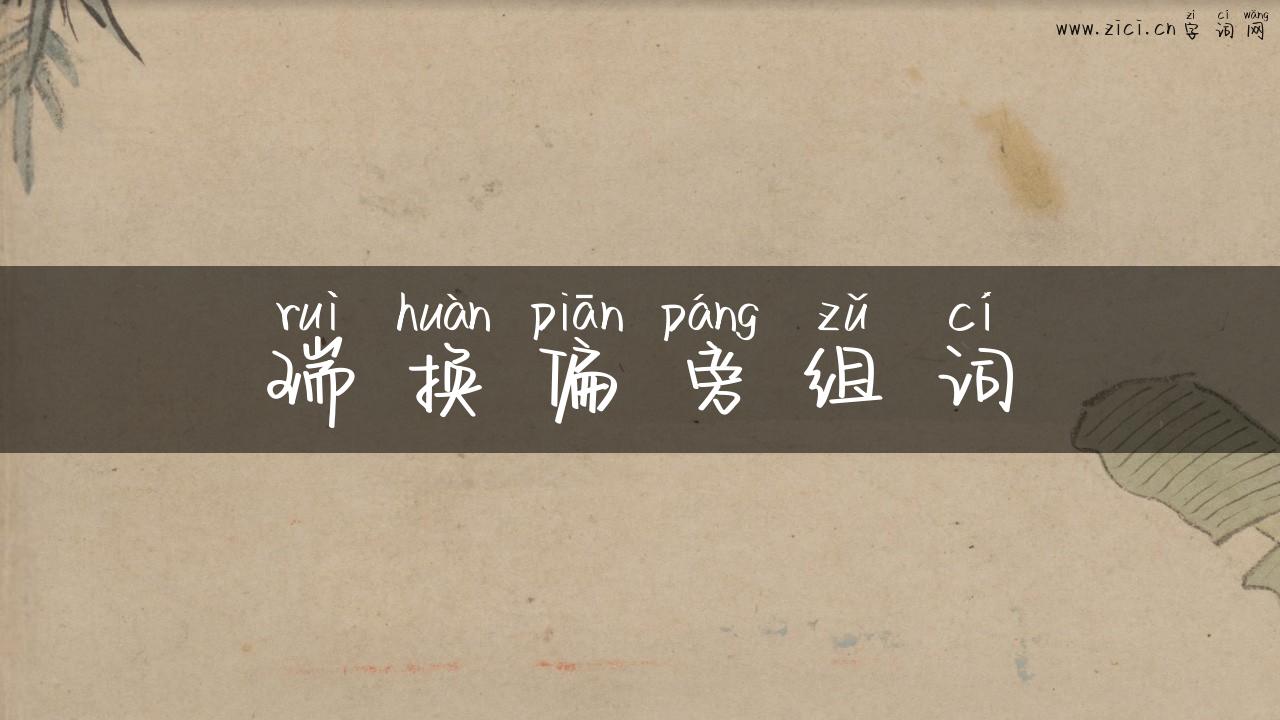 zì cí wǎng
www.zici.cn 字词网
ruì huàn piān páng zǔ cí
瑞换偏旁组词